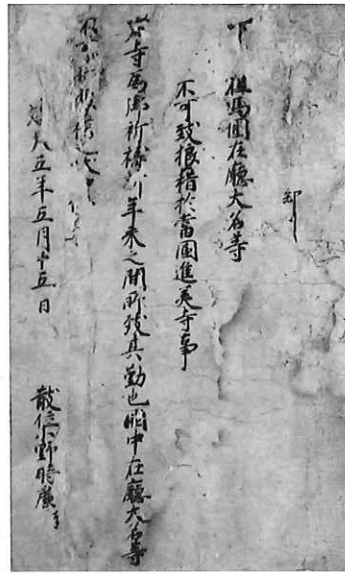 下 但馬國在廳大名等
不可致狼藉於當國進美寺事
當寺為御祈祷所年来之間所致其勤也國中在廳大名等
建久五年五月十五日
散位小野時廣